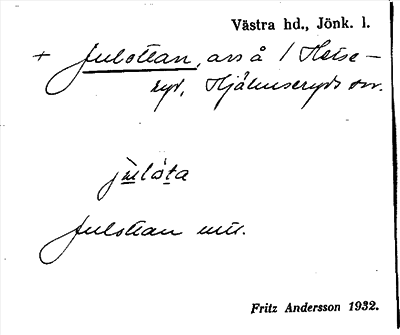 Västra hd., Jönk. l.
+ Julötean, avs å 1 Hatse-
ryd, Hjälmseryds sn.
julöta
Julötean
Fritz Andersson 1932.